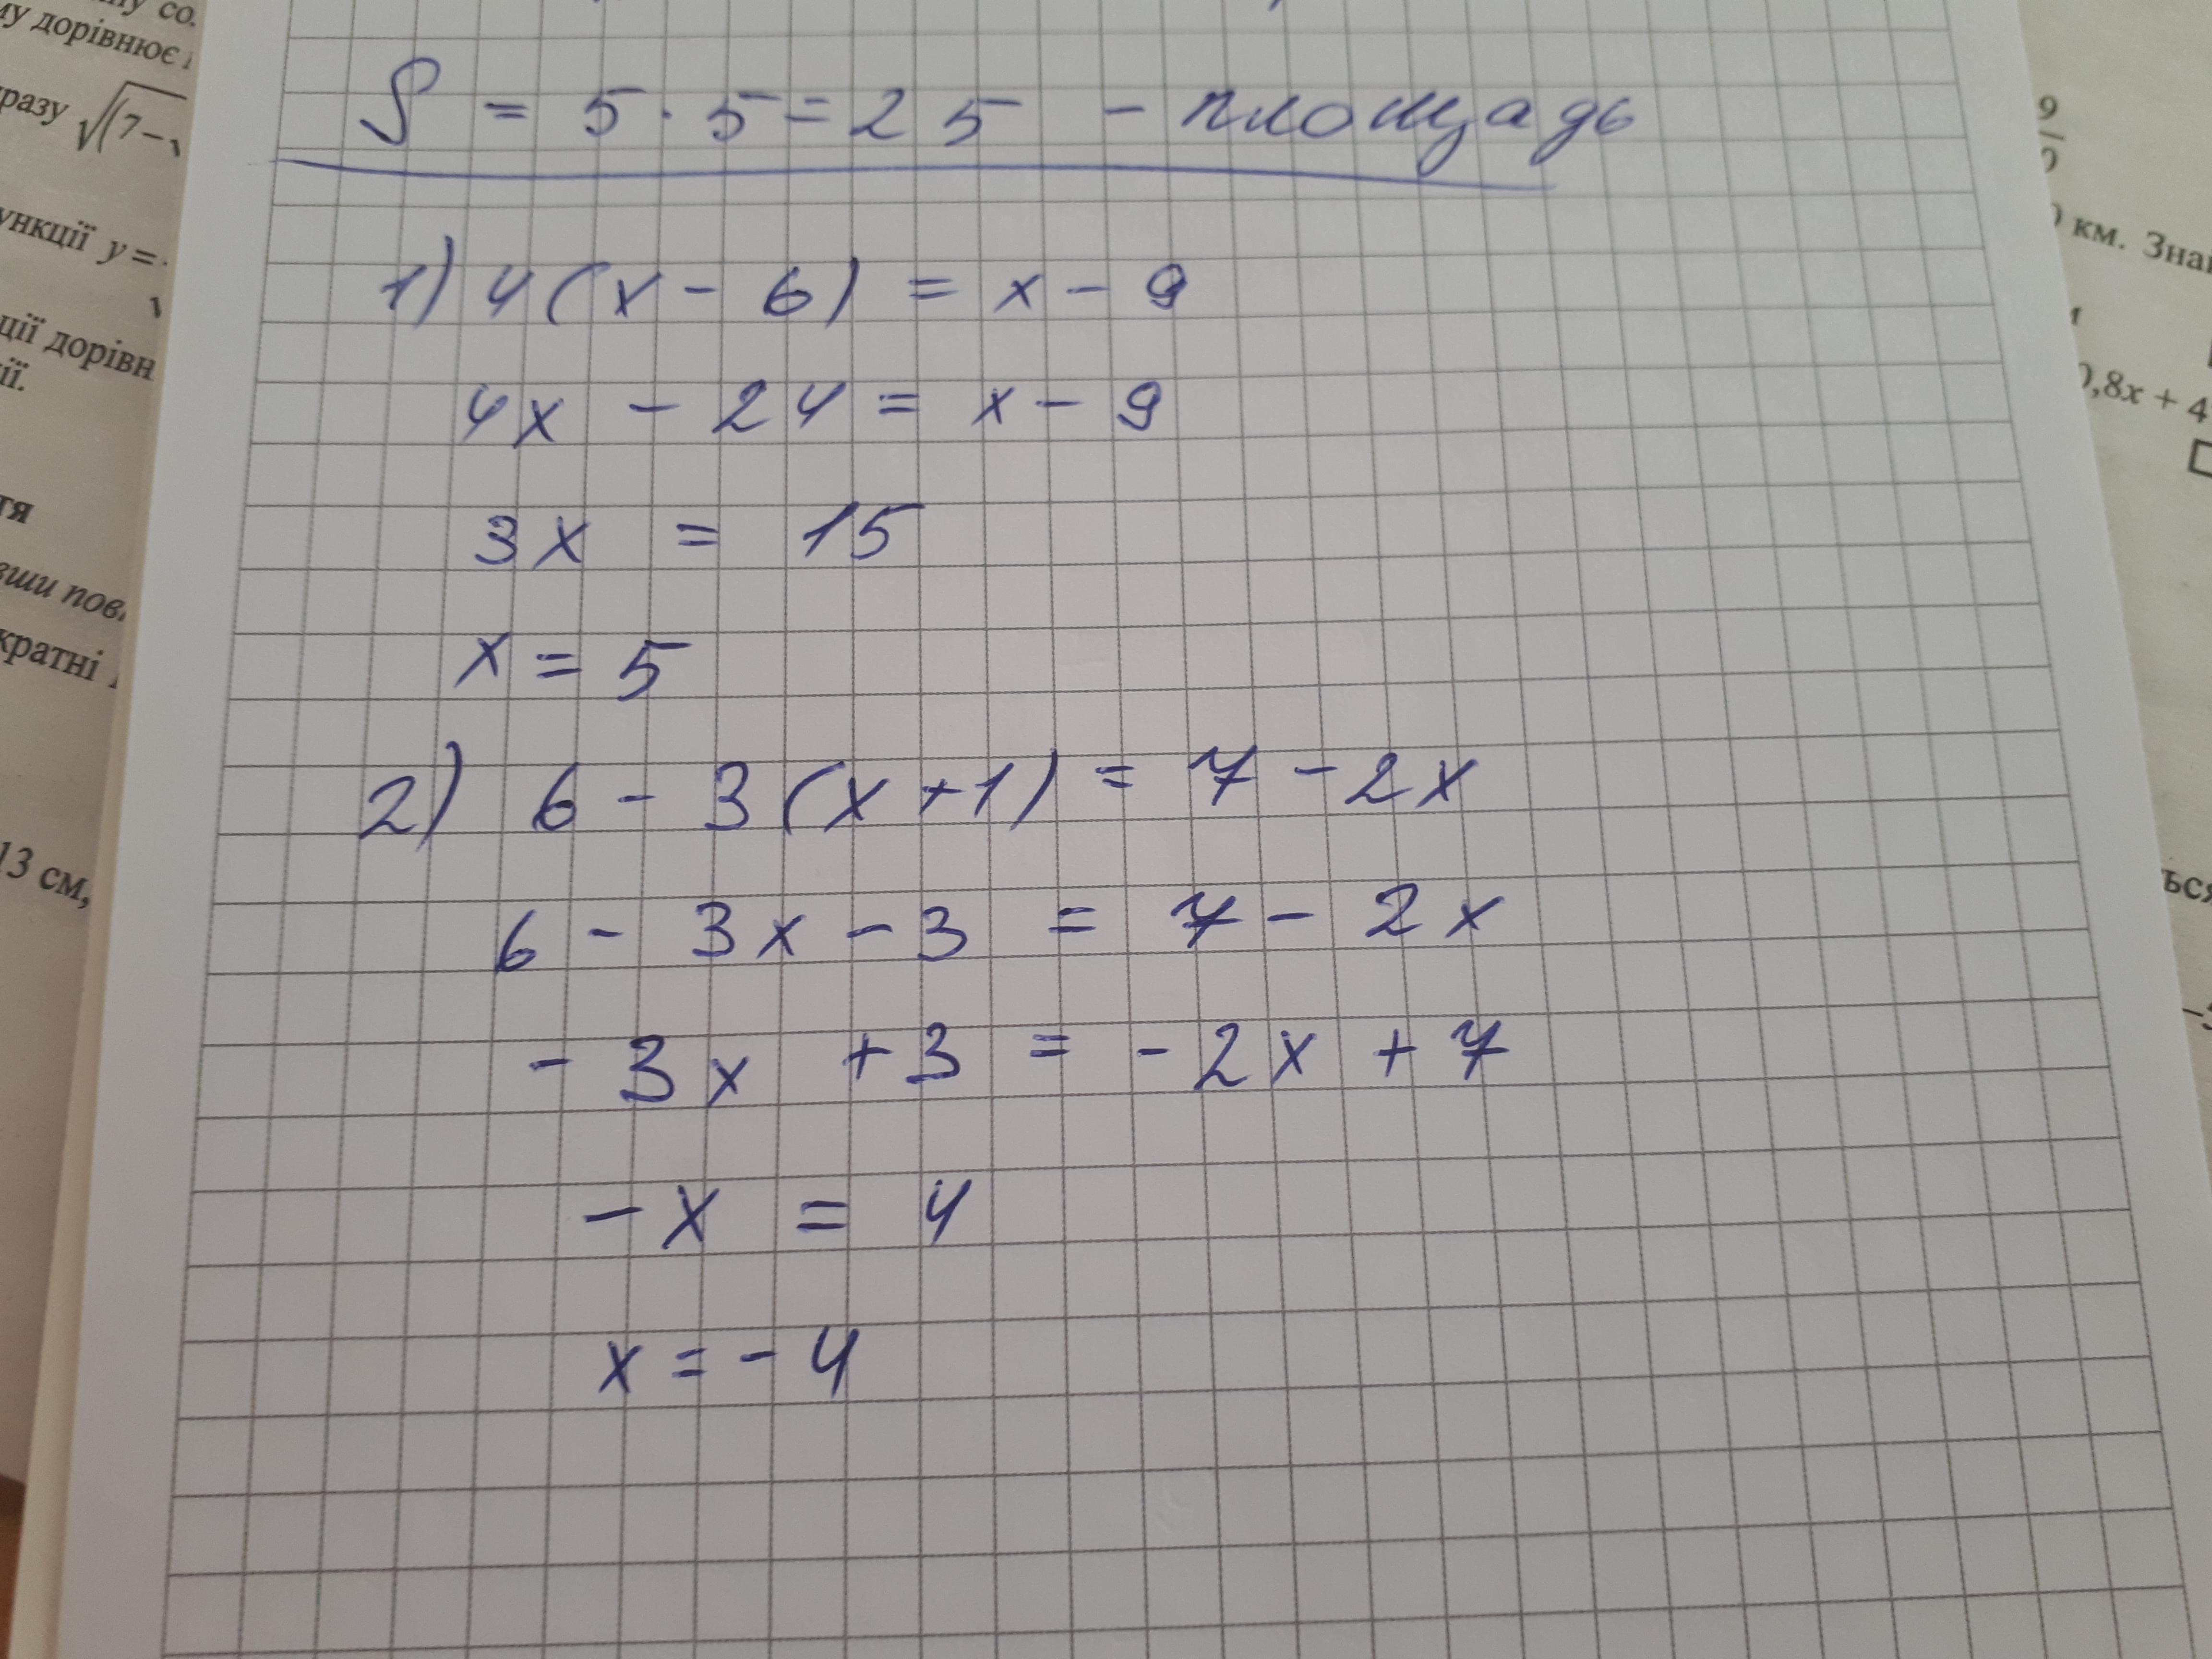 ну со.
му дорівнює
разу √(7−
ункції y =
ції дорівн
ії.
тя
вши пов
кратні
13 см,
S = 5 · 5 = 25 - площадь
1) 4(x - 6) = x - 9
4x - 24 = x - 9
3x = 15
x = 5
2) 6 - 3(x + 1) = 7 - 2x
6 - 3x - 3 = 7 - 2x
- 3x + 3 = - 2x + 7
- x = 4
x = - 4
9
0 км. Знай
0,8x + 4
ться